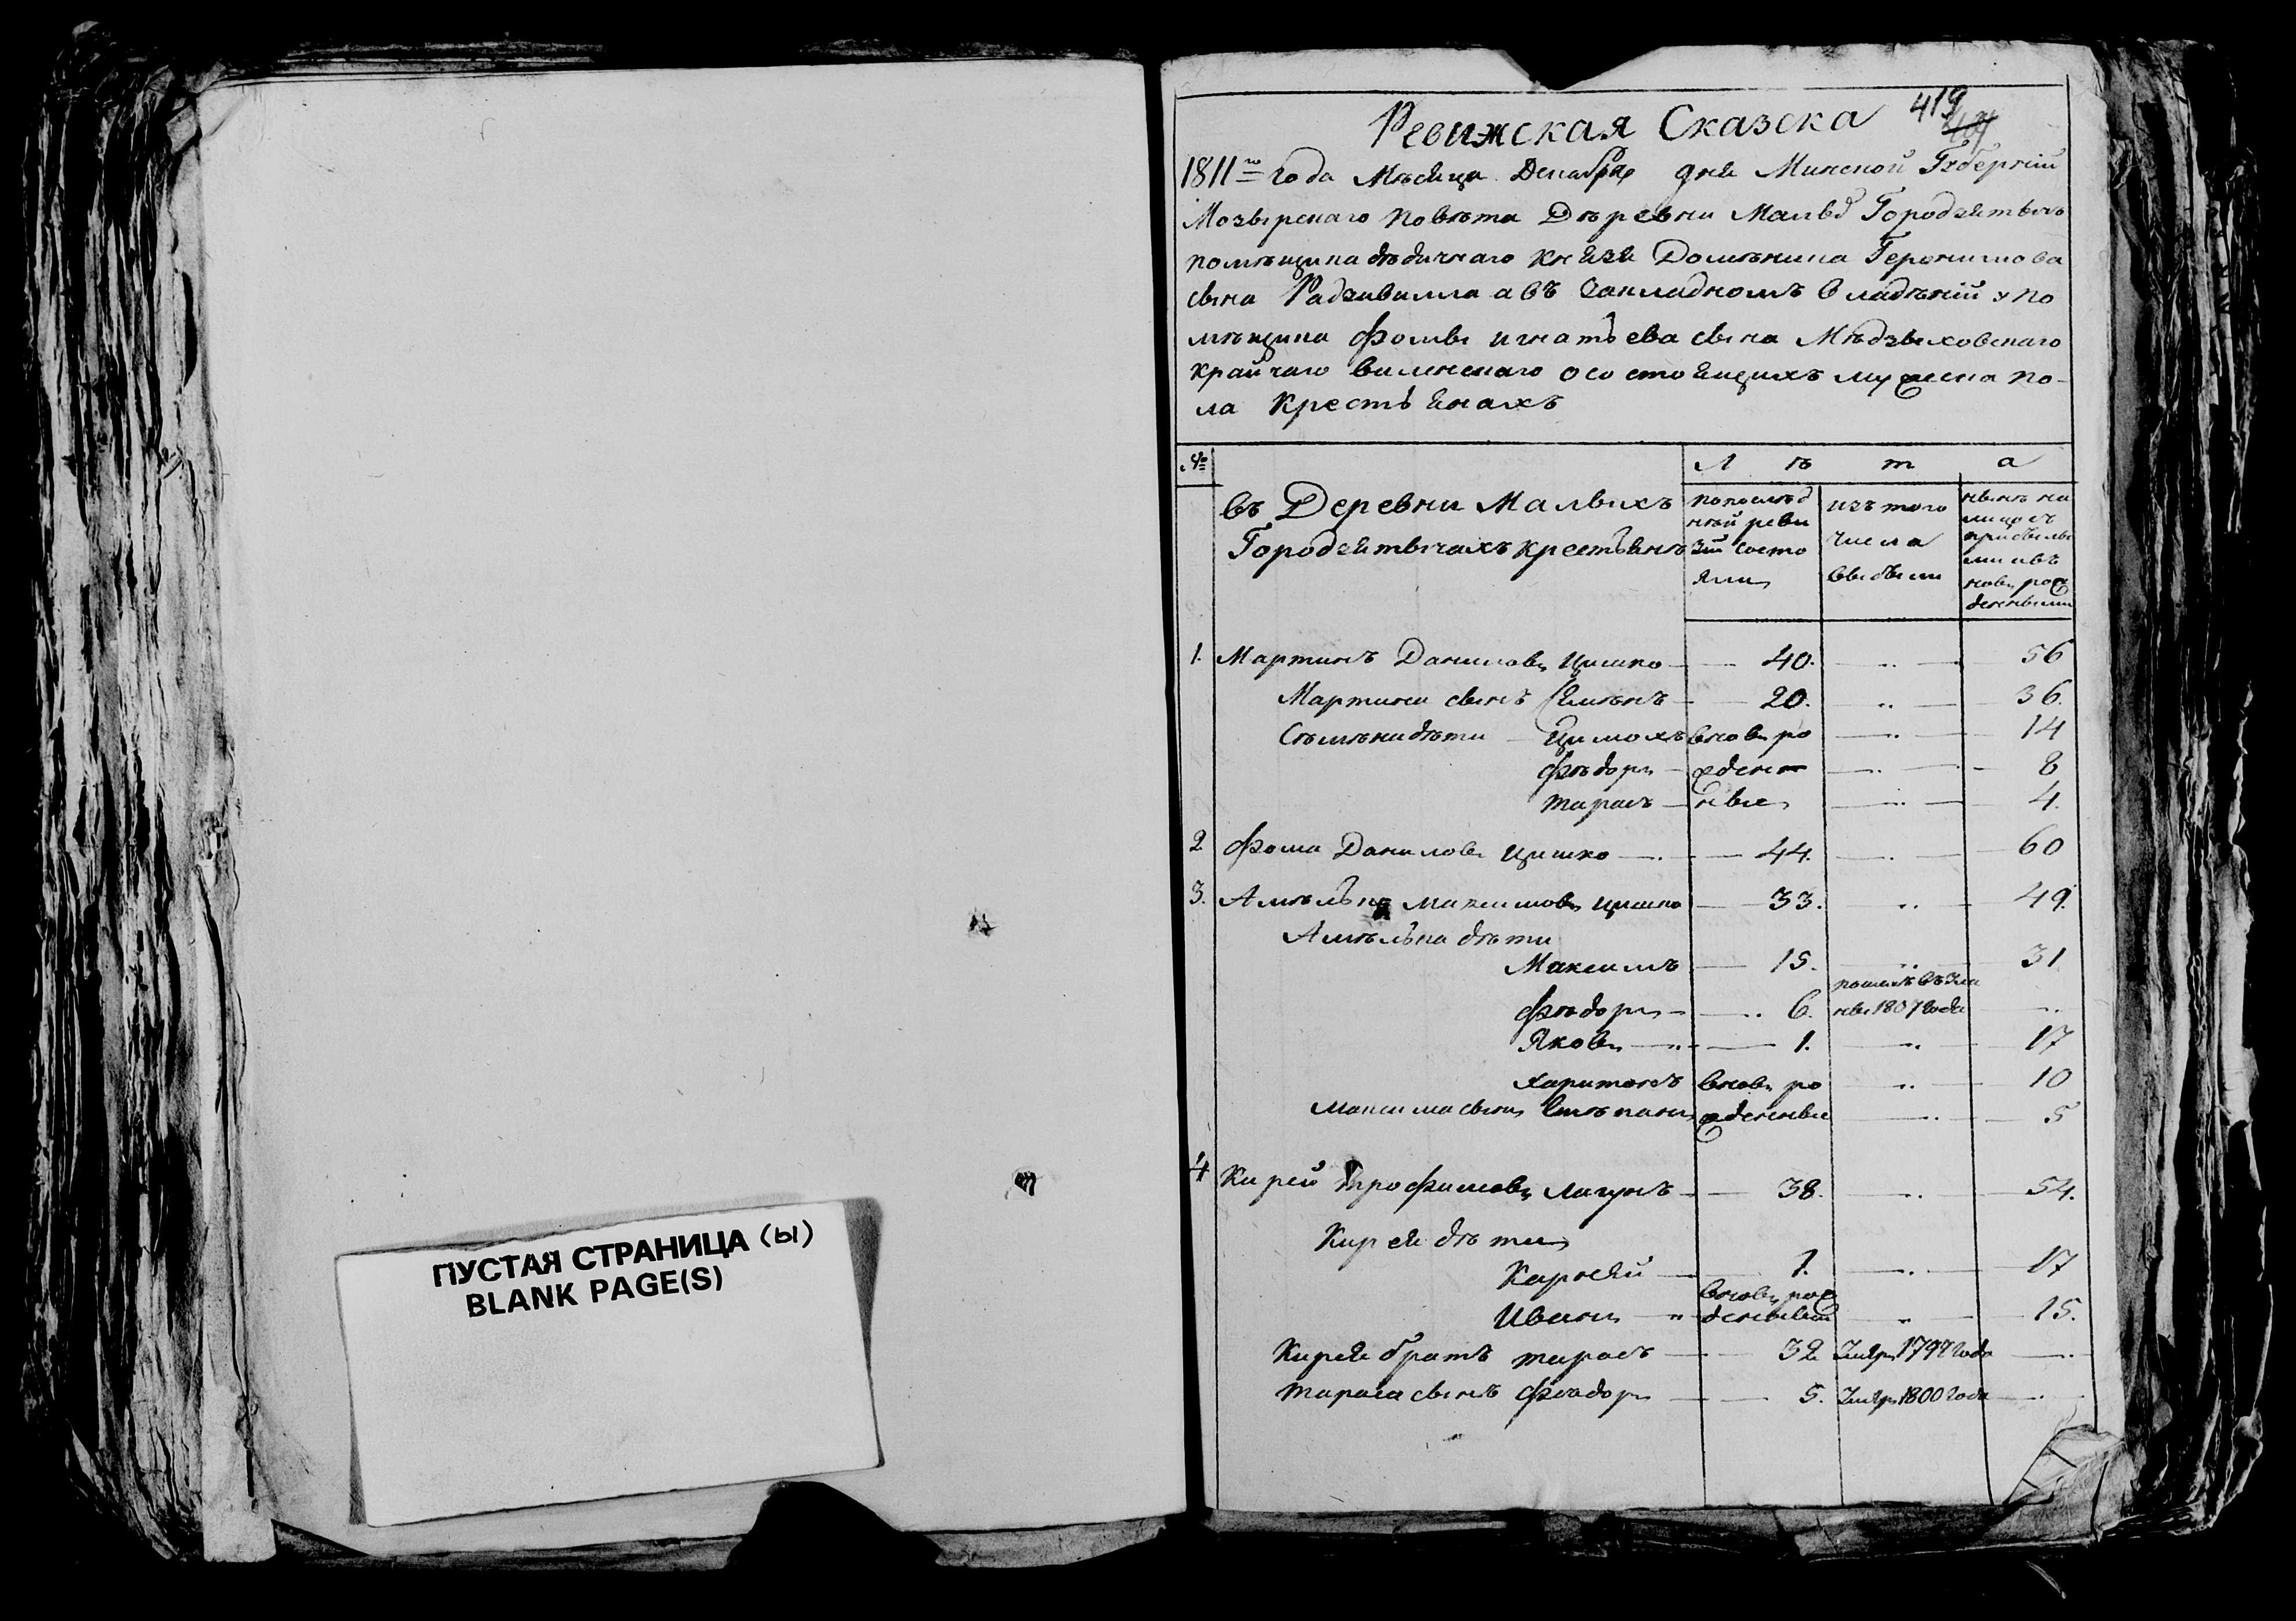 ПУСТАЯ СТРАНИЦА (Ы)
BLANK PAGE(S)
419
Ревижская Сказска
1811го года Мѣсяца Декабря дня Минской Губерніи
Мозырскаго повѣта Дѣревни Малыхъ Городзятычъ
помѣщика дѣдичнаго Князя Домѣника Геронимова
сына Радзивилла а въ Закладномъ владѣніи у по
мѣщика Фомы Игнатьева сына Мѣдзвиховскаго
крайчаго виленскаго о состоящихъ мужеска по-
ла крестьянахъ
№ Л ѣ т а
въ Деревни Малыхъ
Городзятычахъ крестьянъ
по послѣд
нѣй реви
зіи состо
яли
изъ того
числа
выбыли
нынѣ на
лицо съ
прибылы
ми и въ
новь рож
денными
1. Мартинъ Даниловъ Цишко 40. 56
Мартина сынъ Сямѣнъ 20. 36.
Сѣмѣна дѣти Цимохъ вновь ро 14
Фѣдоръ жден 8
Тарасъ ные 4.
2 Фома Даниловъ Цишко 44. 60
3. Амѣлька Максимовъ Цишко 33. 49.
Амѣлька дѣти
Максимъ 15. 31
Фѣдоръ 6. ны 1807 года
Яковъ 1. 17
Харитонъ вновь ро 10
Максима сынъ Стѣпанъ жденные 5
4 Кирей Трофимовъ Лагунъ 38. 54.
Кирея дѣти
Карнѣй 1. 17
Иванъ вновь рож
денный 15.
Кирея братъ Тарасъ 32 Умеръ 1797 года
Тараса сынъ Фѣадоръ 5. Умеръ 1800 года